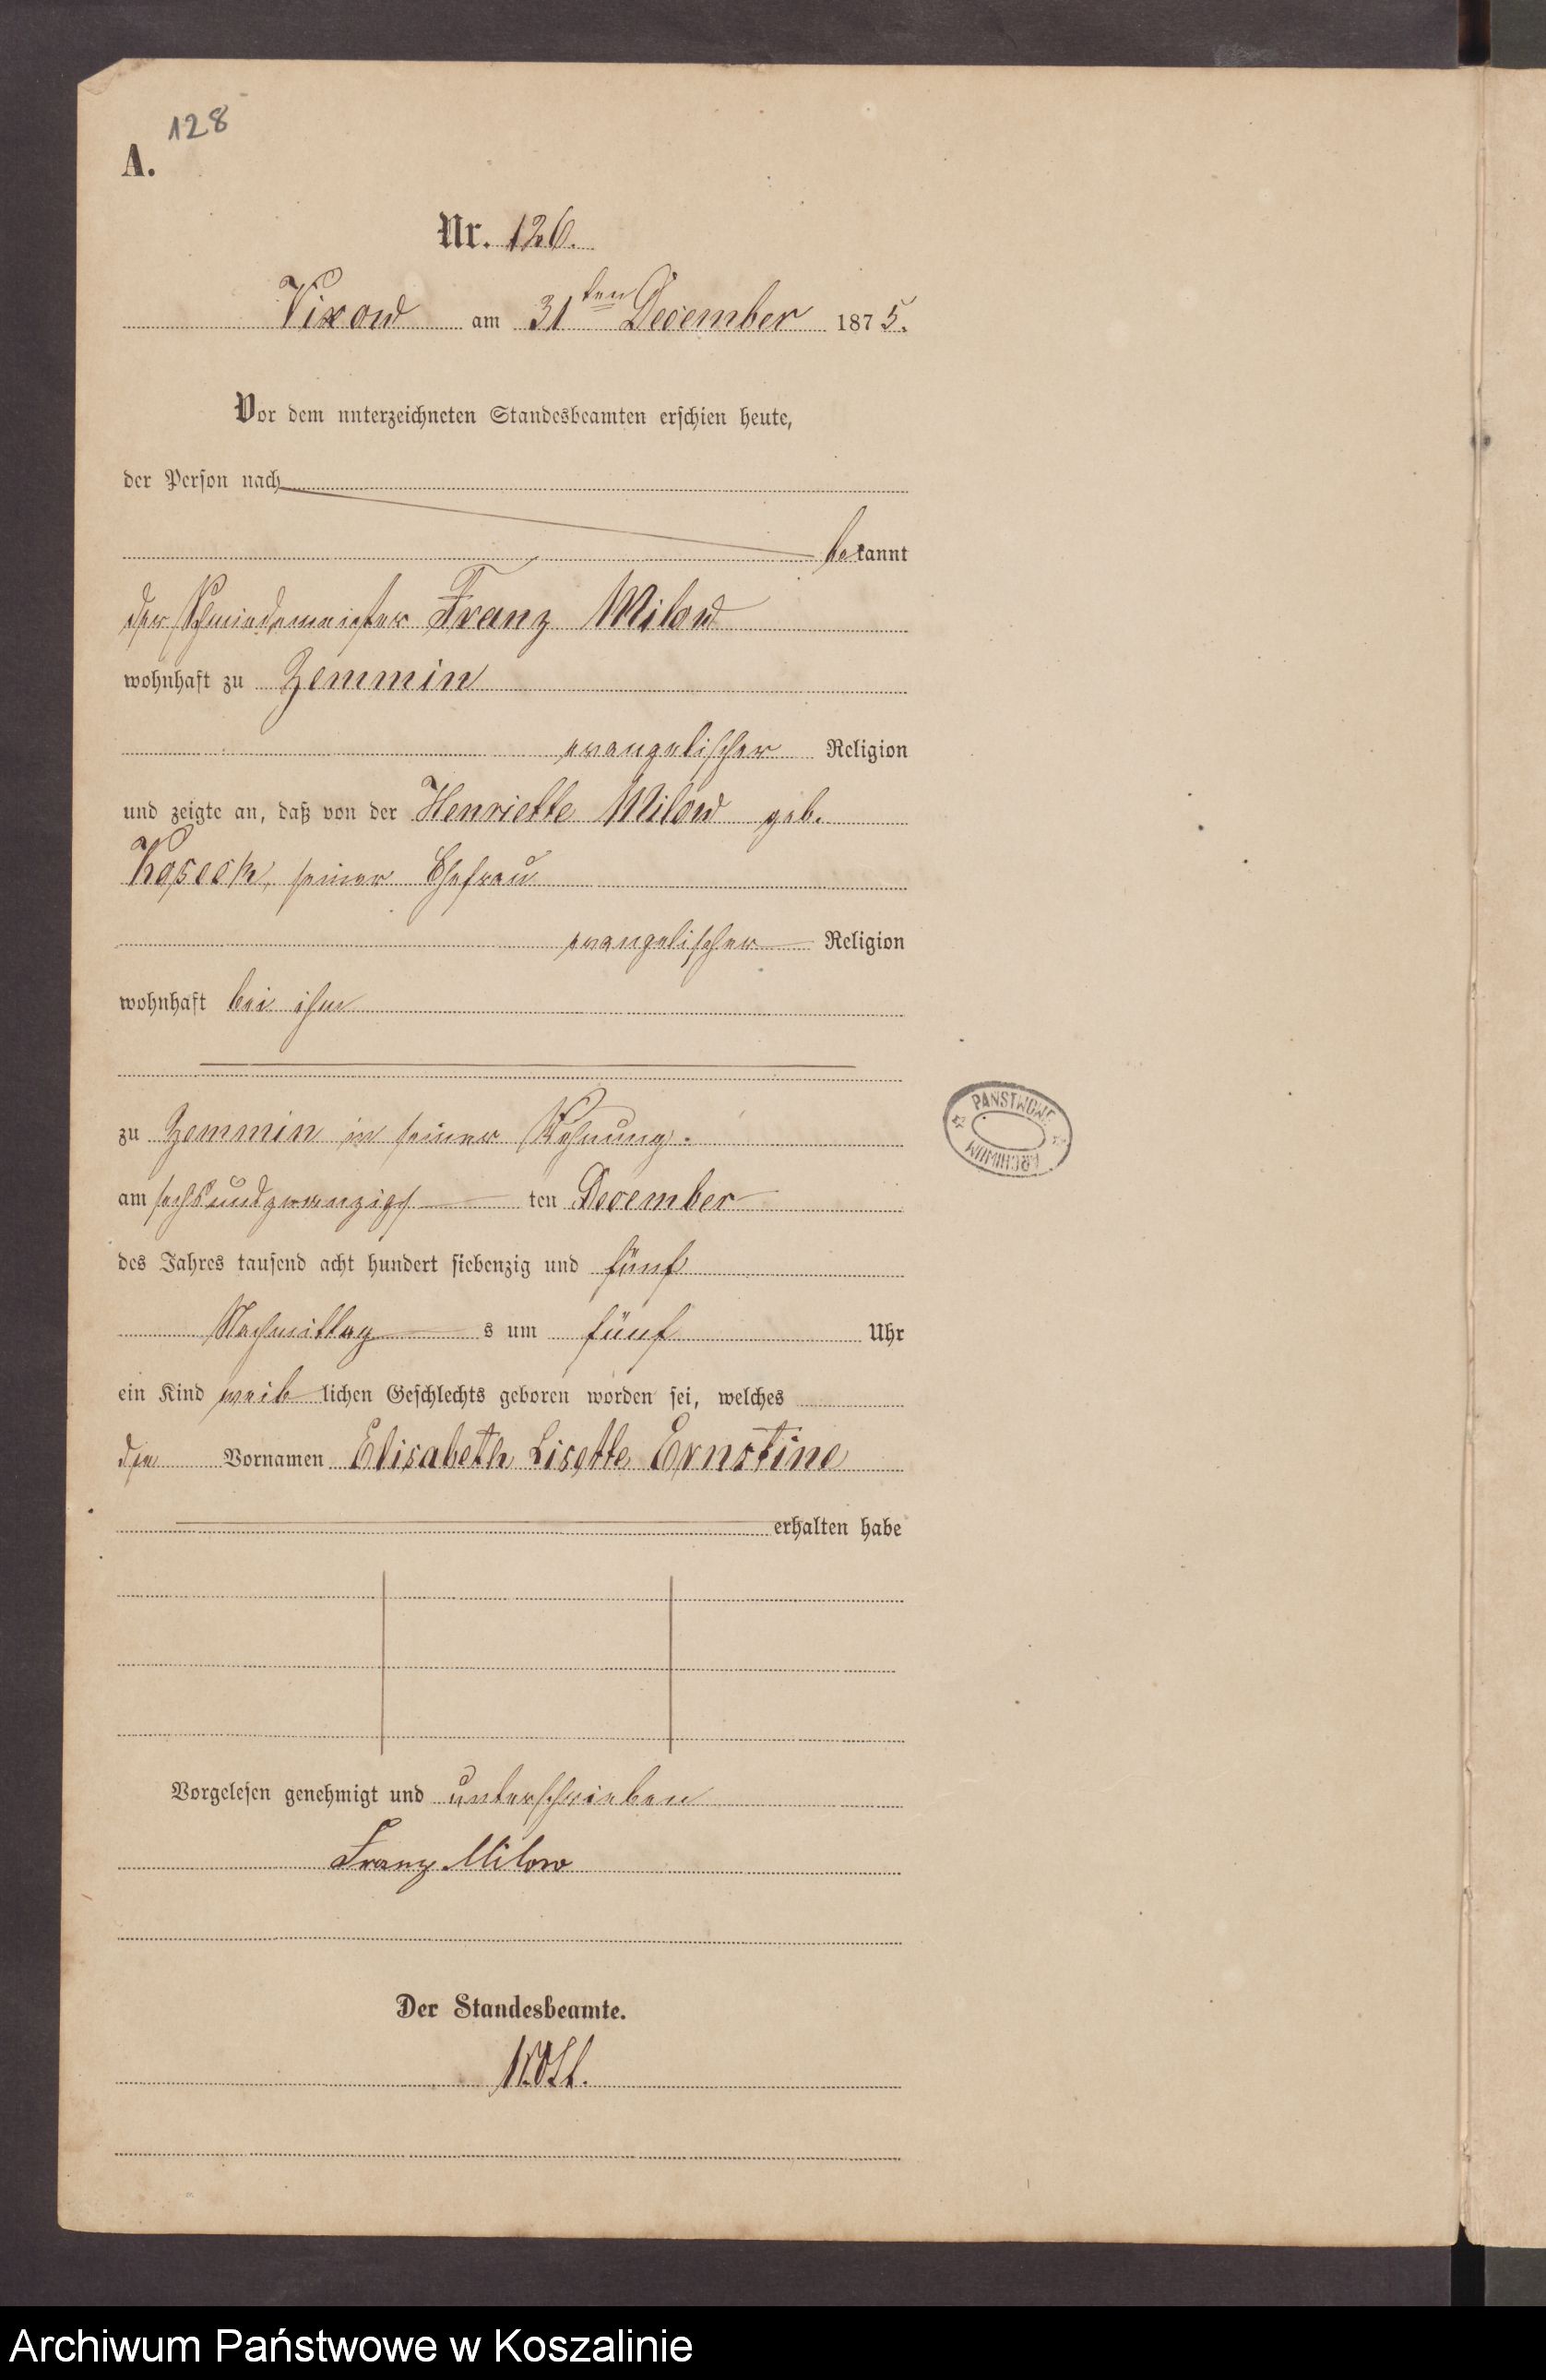 128
A.
Nr. 126.
Vixow am 31ten December 1875.
Vor dem unterzeichneten Standesbeamten erschien heute,
der Person nach
bekannt
der Schmiedemeister Franz Milow
wohnhaft zu Zemmin
evangelischer Religion
und zeigte an, daß von der Henriette Milow geb.
Koseck, seiner Ehefrau
evangelischer Religion
wohnhaft bei ihm
zu Zemmin in seiner Wohnung.
am sechsundzwanzigsten December
des Jahres tausend acht hundert siebenzig und fünf
Nachmittags um fünf Uhr
ein Kind weiblichen Geschlechts geboren worden sei, welches
die Vornamen Elisabeth Lisette Ernstine
erhalten habe
Vorgelesen genehmigt und unterschrieben
Franz Milow
Der Standesbeamte.
PAŃSTWOWE
ARCHIWUM
Archiwum Państwowe w Koszalinie